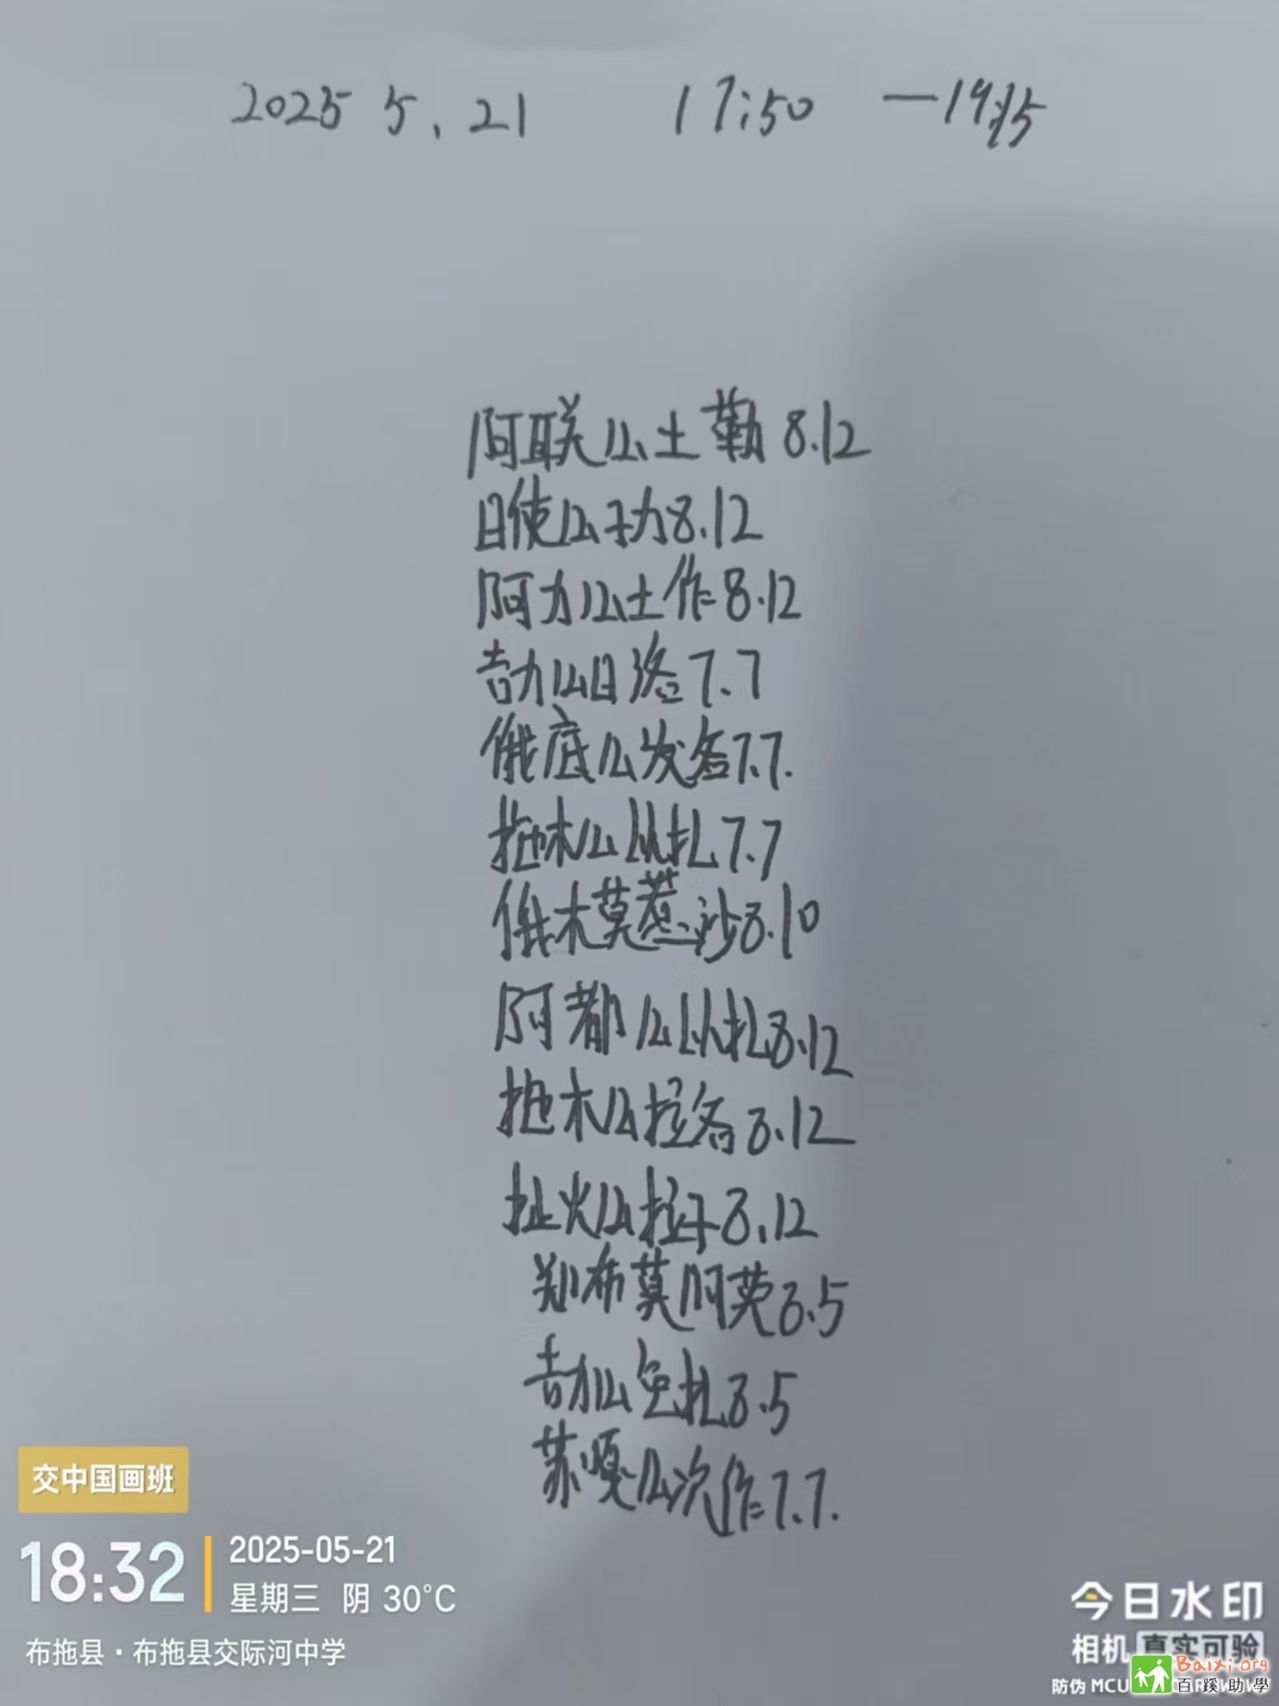 2025 5.21 17:50 —19:15
阿联么土勤 8.12
日使么子力8.12
阿力么土作8.12
吉力么日洛7.7
俄底么发各7.7.
拖木么从扎7.7
俄木莫惹沙8.10
阿都么从扎8.12
拖木么拉各8.12
扯火么拉子8.12
郑布莫阿英8.5
吉力么色扎8.5
苏嘎么次作7.7.
交中国画班
18:32
2025-05-21
星期三 阴 30°C
布拖县·布拖县交际河中学
今日水印
相机 真实可验
防伪
Baixi.org
百蹊助學